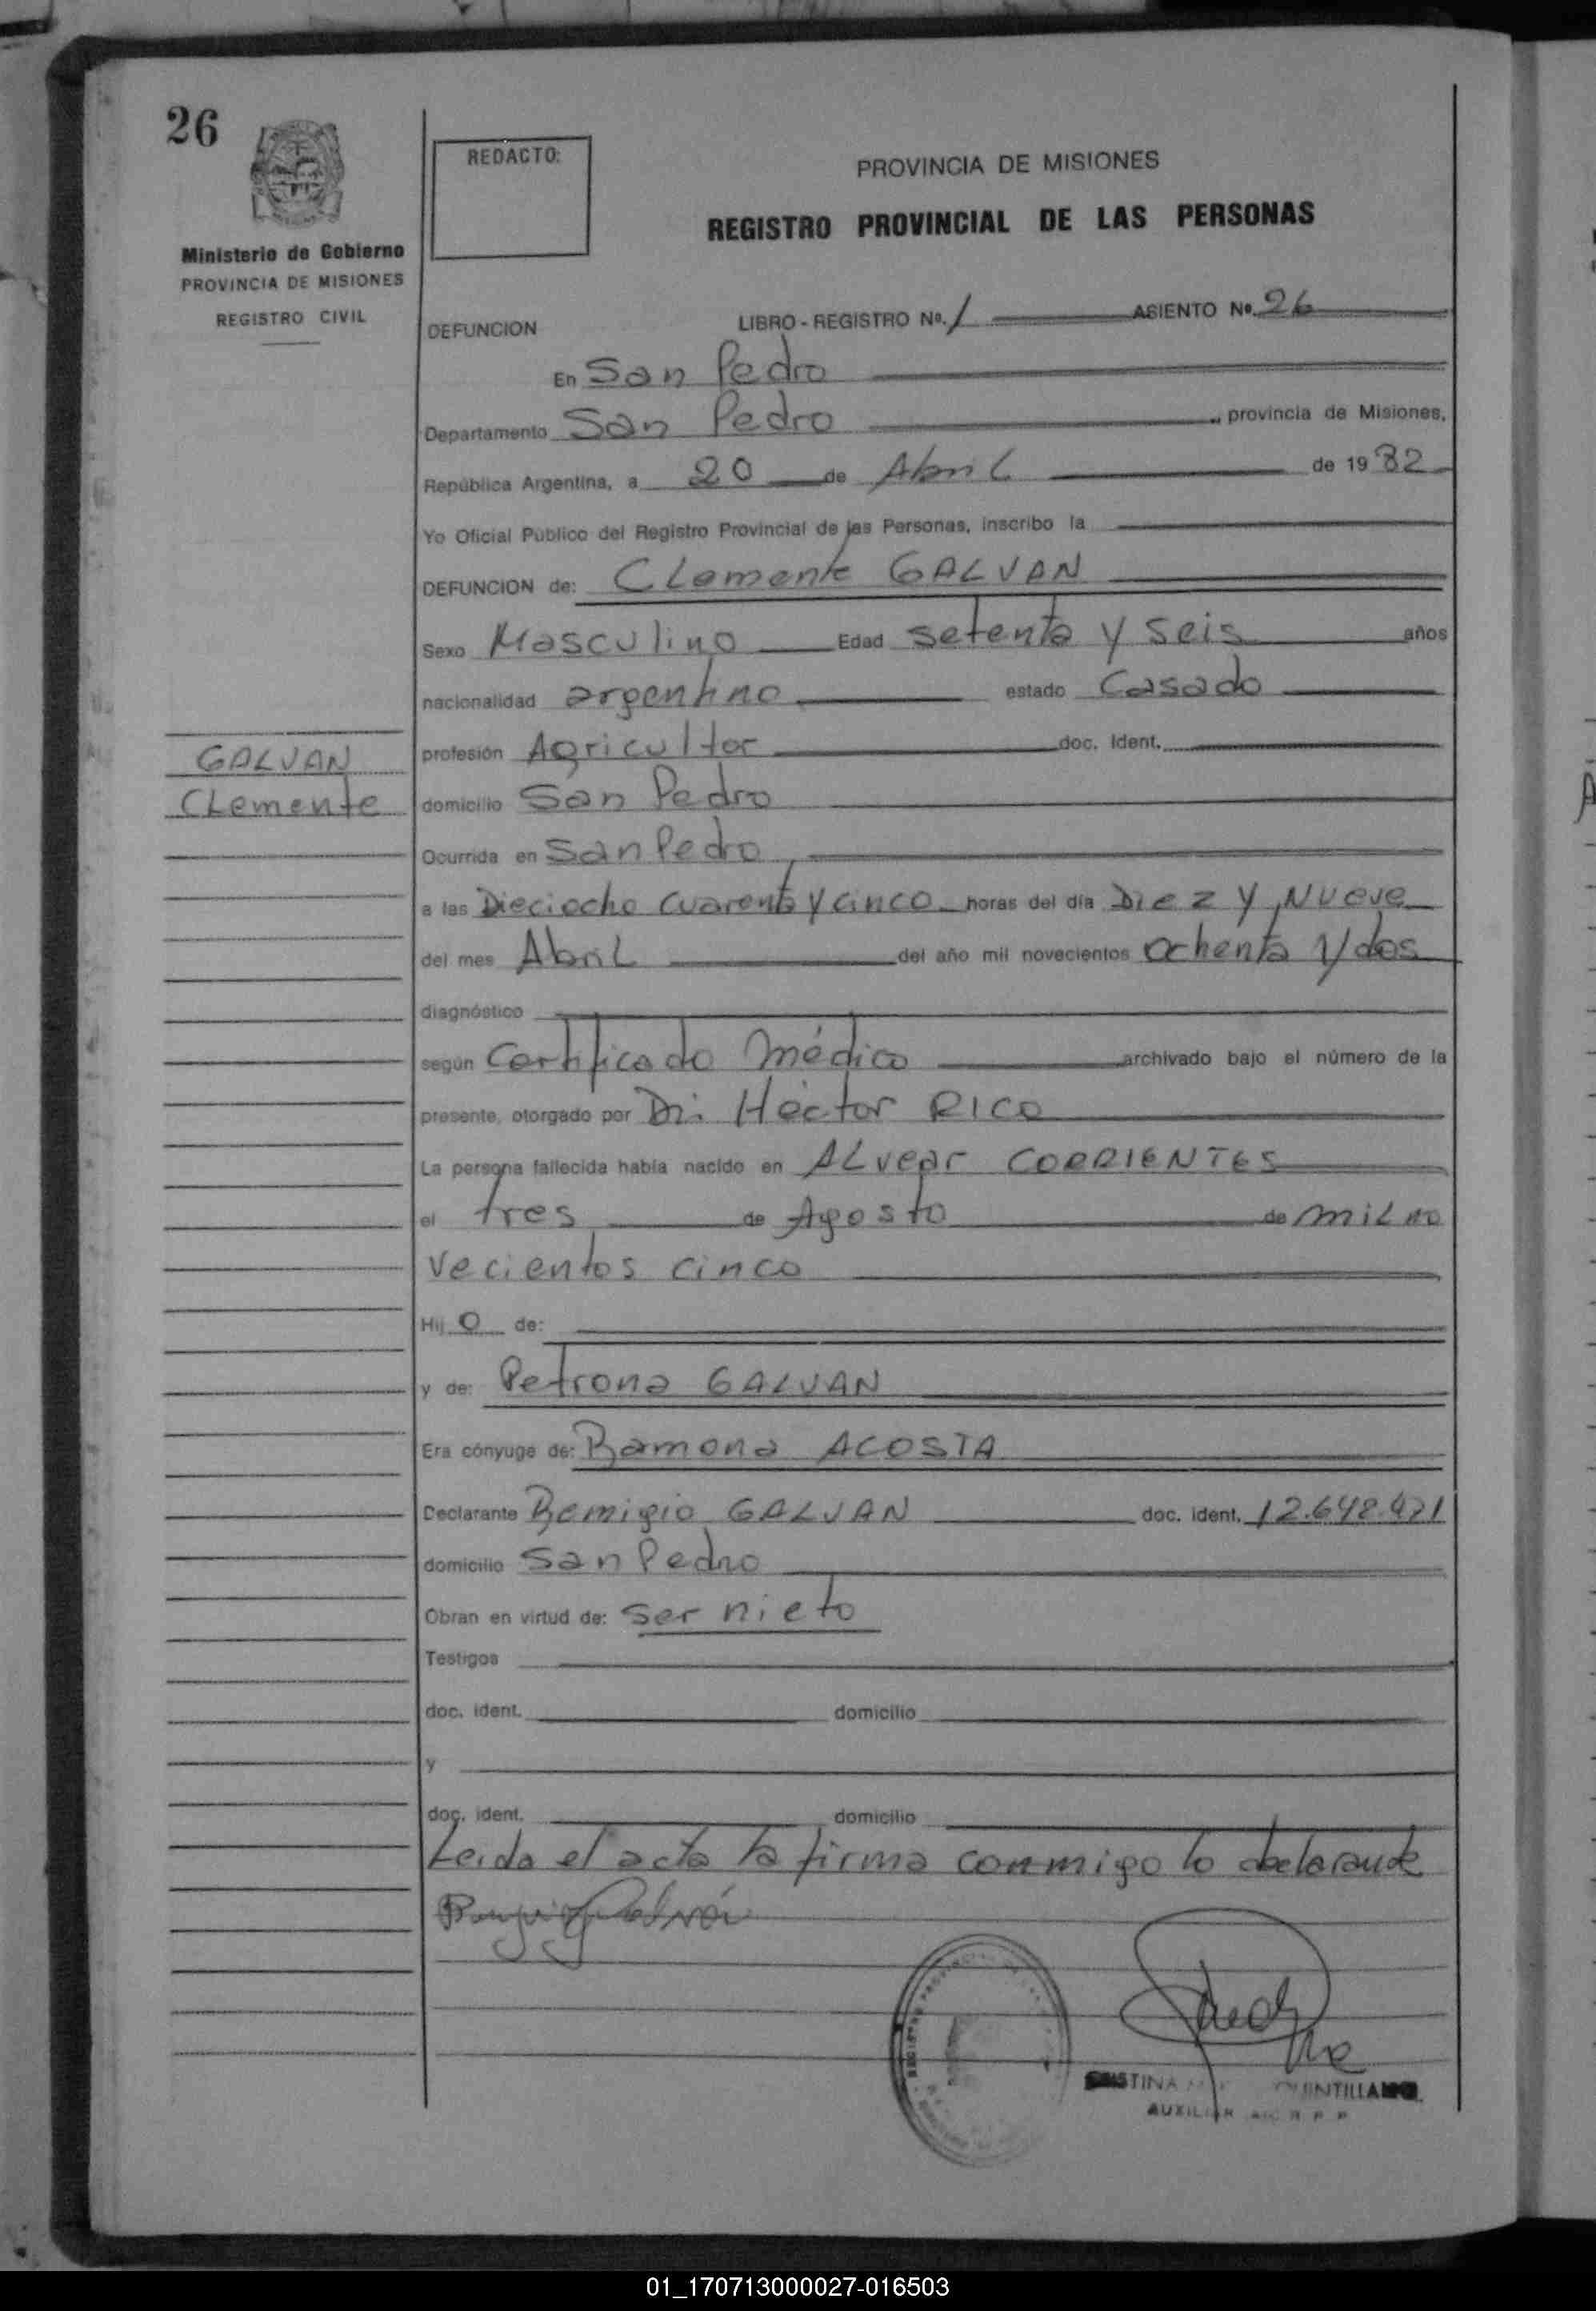 26
REDACTO:
PROVINCIA DE MISIONES
REGISTRO PROVINCIAL DE LAS PERSONAS
Ministerio de Gobierno
PROVINCIA DE MISIONES
REGISTRO CIVIL
DEFUNCION LIBRO - REGISTRO Nº. 1 ASIENTO Nº. 26
En San Pedro
Departamento San Pedro, provincia de Misiones,
República Argentina, a 20 de Abril de 1982
Yo Oficial Público del Registro Provincial de las Personas, inscribo la
DEFUNCION de: Clemente GALVAN
Sexo Masculino Edad setenta y seis años
nacionalidad argentino estado Casado
GALVAN
Clemente
profesión Agricultor doc. Ident.
domicilio San Pedro
Ocurrida en San Pedro,
a las Dieciocho cuarenta y cinco horas del día Diez y Nueve
del mes Abril del año mil novecientos ochenta y dos
diagnóstico
según Certificado Médico archivado bajo el número de la
presente, otorgado por Dr. Héctor RICO
La persona fallecida había nacido en ALvear CORRIENTES
el tres de Agosto de mil no
vecientos cinco
Hij o de:
y de: Petrona GALVAN
Era cónyuge de: Ramona ACOSTA
Declarante Remigio GALVAN doc. ident. 12.648.421
domicilio San Pedro
Obran en virtud de: ser nieto
Testigos
doc. ident. domicilio
y
doc. ident. domicilio
Leida el acta la firma conmigo lo declarante
QUINTILLANO
AUXILIAR
01_170713000027-016503